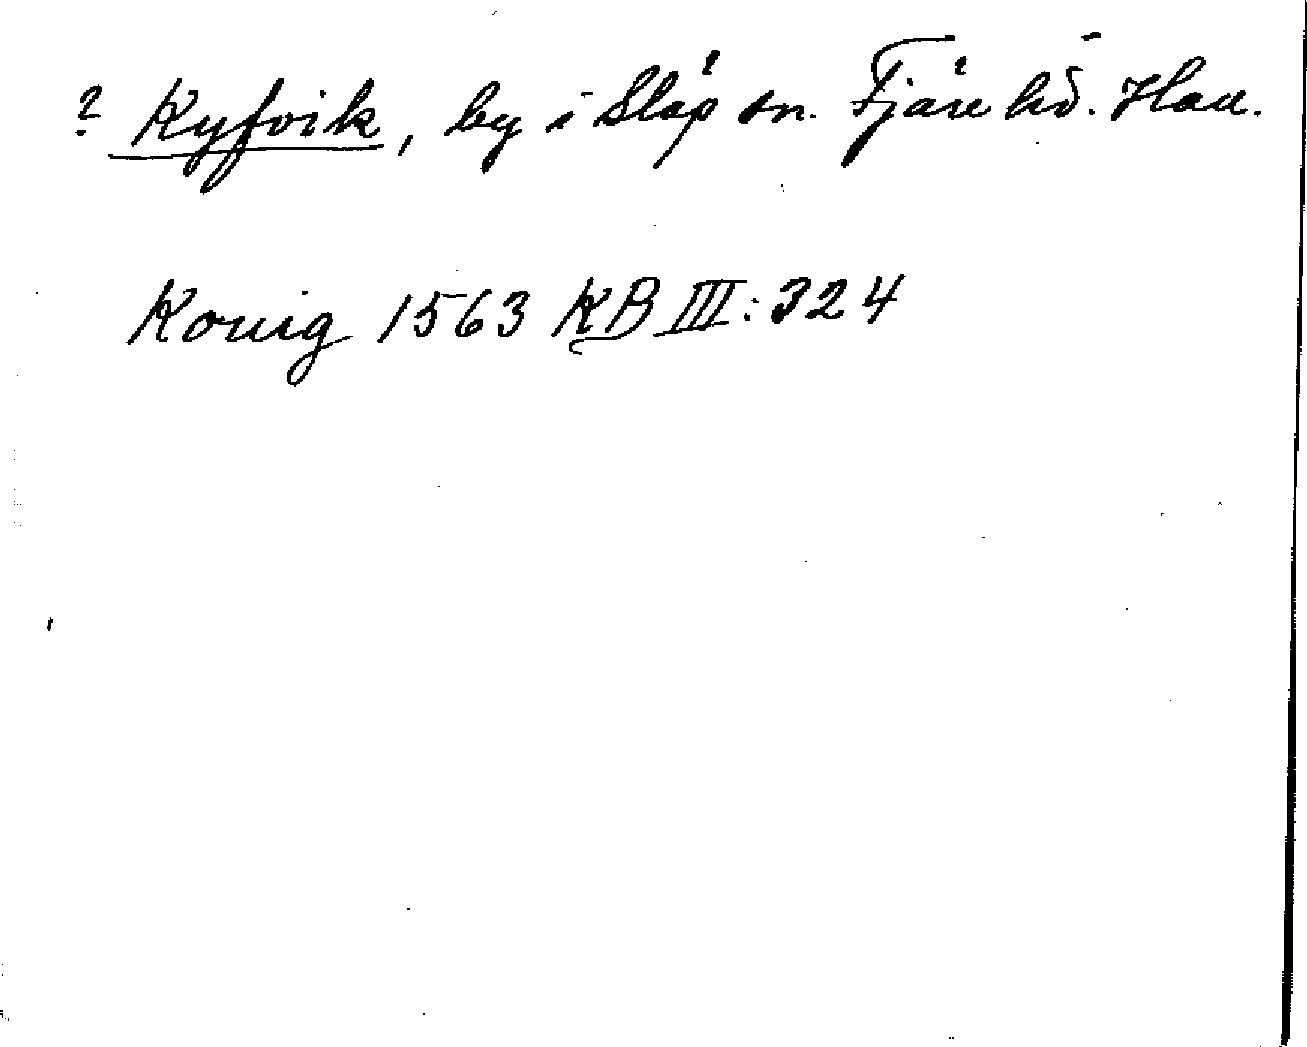 ? Kyfvik, by i Släp sn. Fjäre hd. Hall.
Kouig 1563 KB III: 324